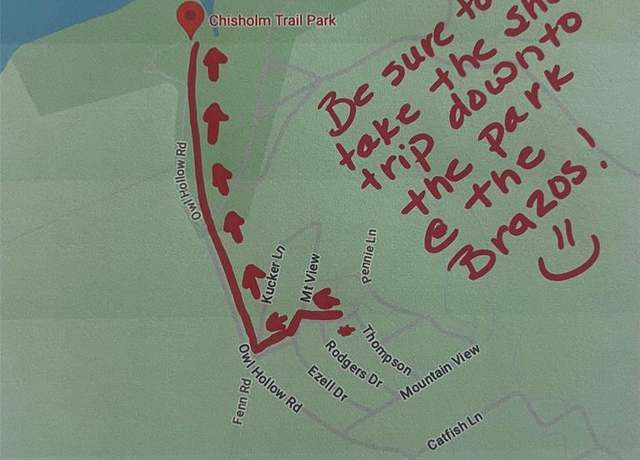 Chisholm Trail Park
Be sure to
take the
trip down to
the park
@ the
Brazos!
Owl Hollow Rd
Kucker Ln
Mt View
Pennie Ln
Thompson
Rodgers Dr
Mountain View
Ezell Dr
Owl Hollow Rd
Fenn Rd
Catfish Ln